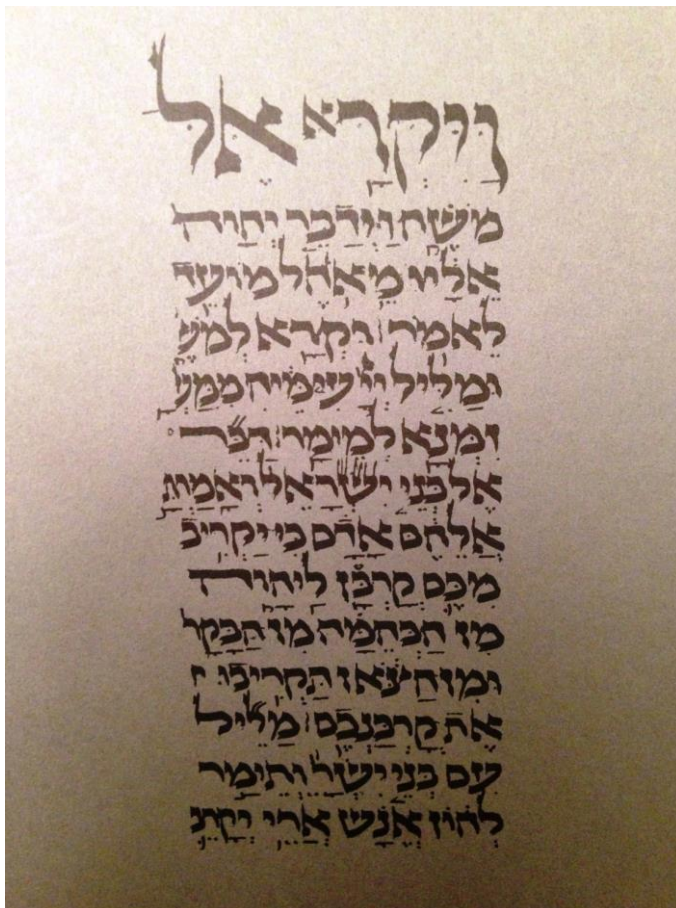 ויקרא אל
משה וידבר יהוה
אליו מאהל מועד
לאמר׃ וקרא למש
ומליל ייי עימיה ממש
זמנא למימר׃ דבר
אל בני ישראל ואמרת
אלהם אדם כי יקריב
מכם קרבן ליהוה
מן הבהמה מן הבקר
ומן הצאן תקריבו
את קרבנכם׃ מליל
עם בני ישר ותימר
להון אנש ארי